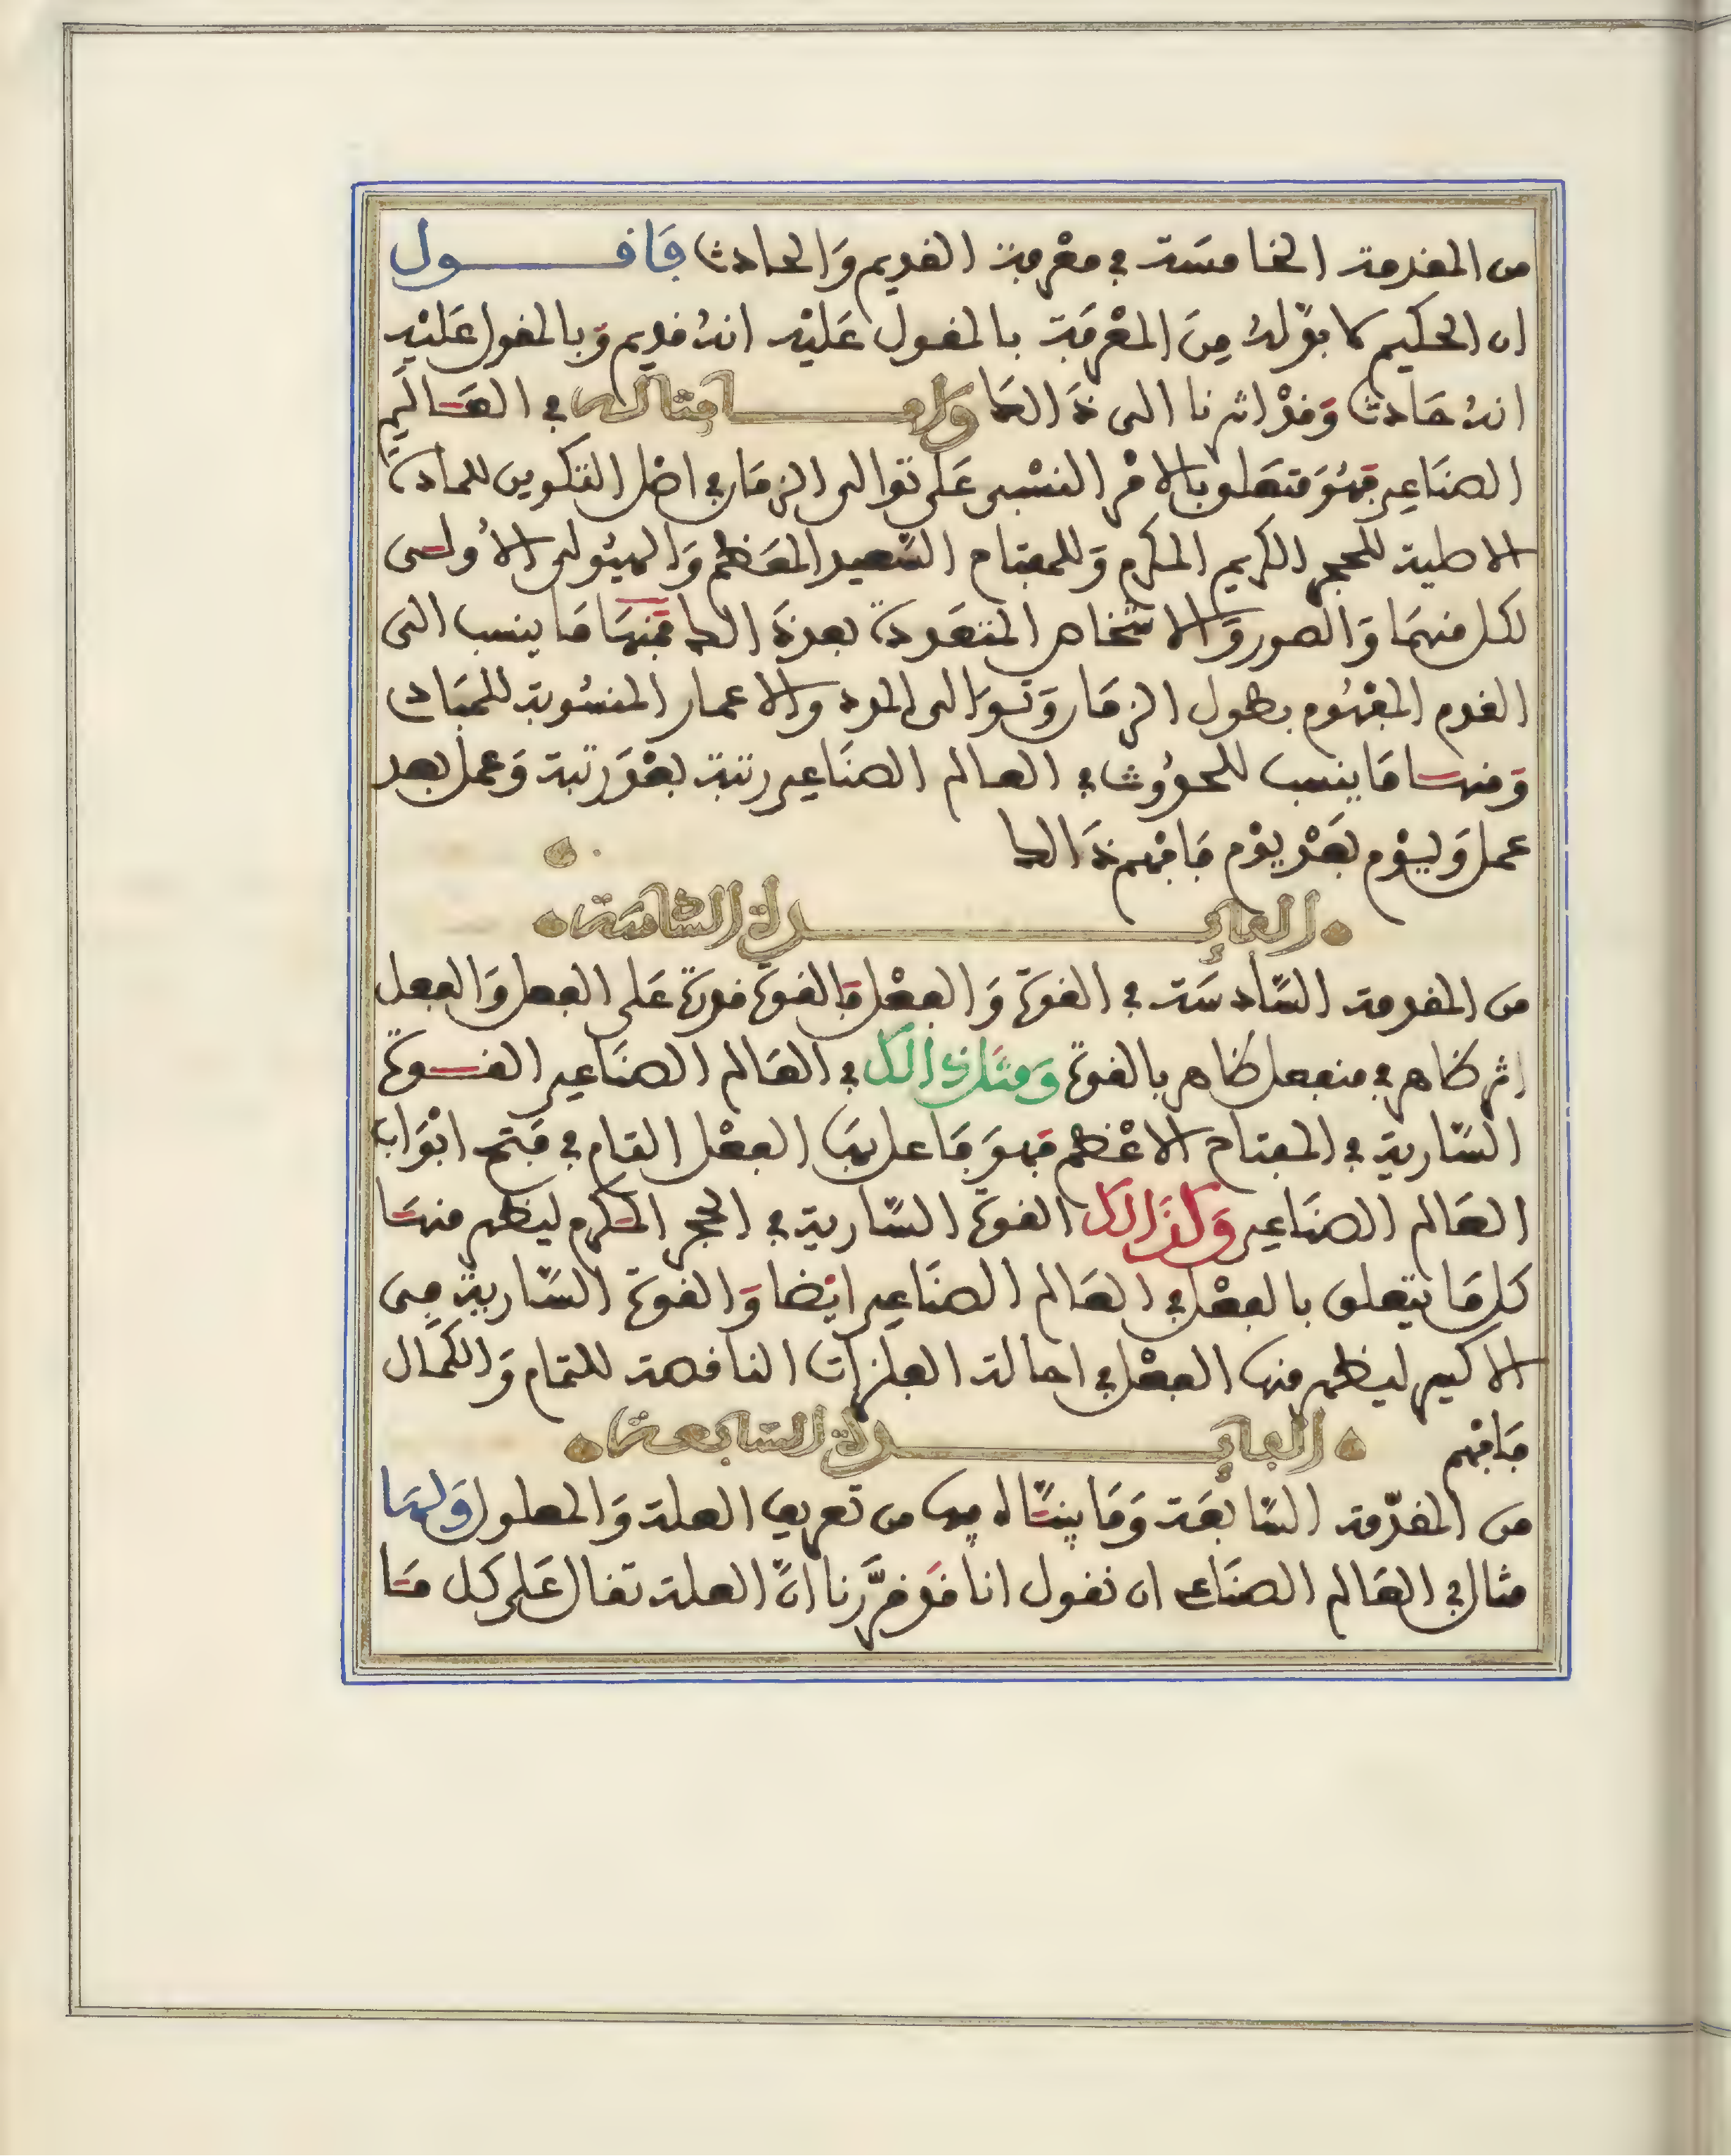 من المقدمة الخامسَة في معْرِفة القديم وَالحادث فَاقـــول
ان الحكيم لا بدّ لهُ مِنَ المعْرفَة بالمقول عَليْه انهُ قديم وَبالمقول عَليْه
انهُ حَادث وَقدْ اشرنا الى ذَالك وامـــا مثاله في العَـالَم
الصنَاعي فهُوَ متعَلق بالامْر النسْبي عَلى توالى الزمَان في اصْل التكوين للمادة
الاصلية للحجر الكريم المكرم وَللمفتاح السَّعيد المعَظم وَالهيُولى الأُولـى
لكل منهمَا وَالصور وَالاشخاص المتعَددة بعد ذَالك فمنهَا مَا ينسب الى
القدم المفهُوم بطول الزمَان وَتوَالى المدد والاعمار المنسُوبة للحيَاة
وَمنهـا مَا ينسب للحدُوث في العالم الصنَاعي رتبة بعْدَ رتبة وَعمل بعد
عمل وَيوْم بعَدْ يوْم فَافهم ذَالك
الفائـــدة السَّادسَة
من المقدمة السَّادسَة في القوة وَالفعْل فالقوة قدرة عَلى الفعل وَالفعل
اثر ظاهر في منفعل ظاهر بالقوة وَمثَال ذالك في العَالم الصنَاعي القـوة
السَّارية في المفتاح الاعْظم فهوَ فَاعل بهَا الفعْل التام في فَتح ابْوَاب
العَالم الصنَاعي وَكذَالك القوة السَّارية في الحجر المكرم ليظهر منهَـا
كل مَا يتعلق بالفعْل في العَالم الصنَاعي ايْضا وَالقوة السَّارية في
الاكسير ليظهر منها الفعْل في احالة الفلزات الناقصة للتمام وَالكمَال
فَافهم الفائـــدة السَّابعـة
من المقدّمة السَّابعَة وَمَا يشَار اليه فيها من تعريف العلة وَالمعلول وَلهَـا
مثال في العَالم الصنَاعي ان نقول انا قد قرَّرنا انَّ العلة تقال عَلى كل مَـا